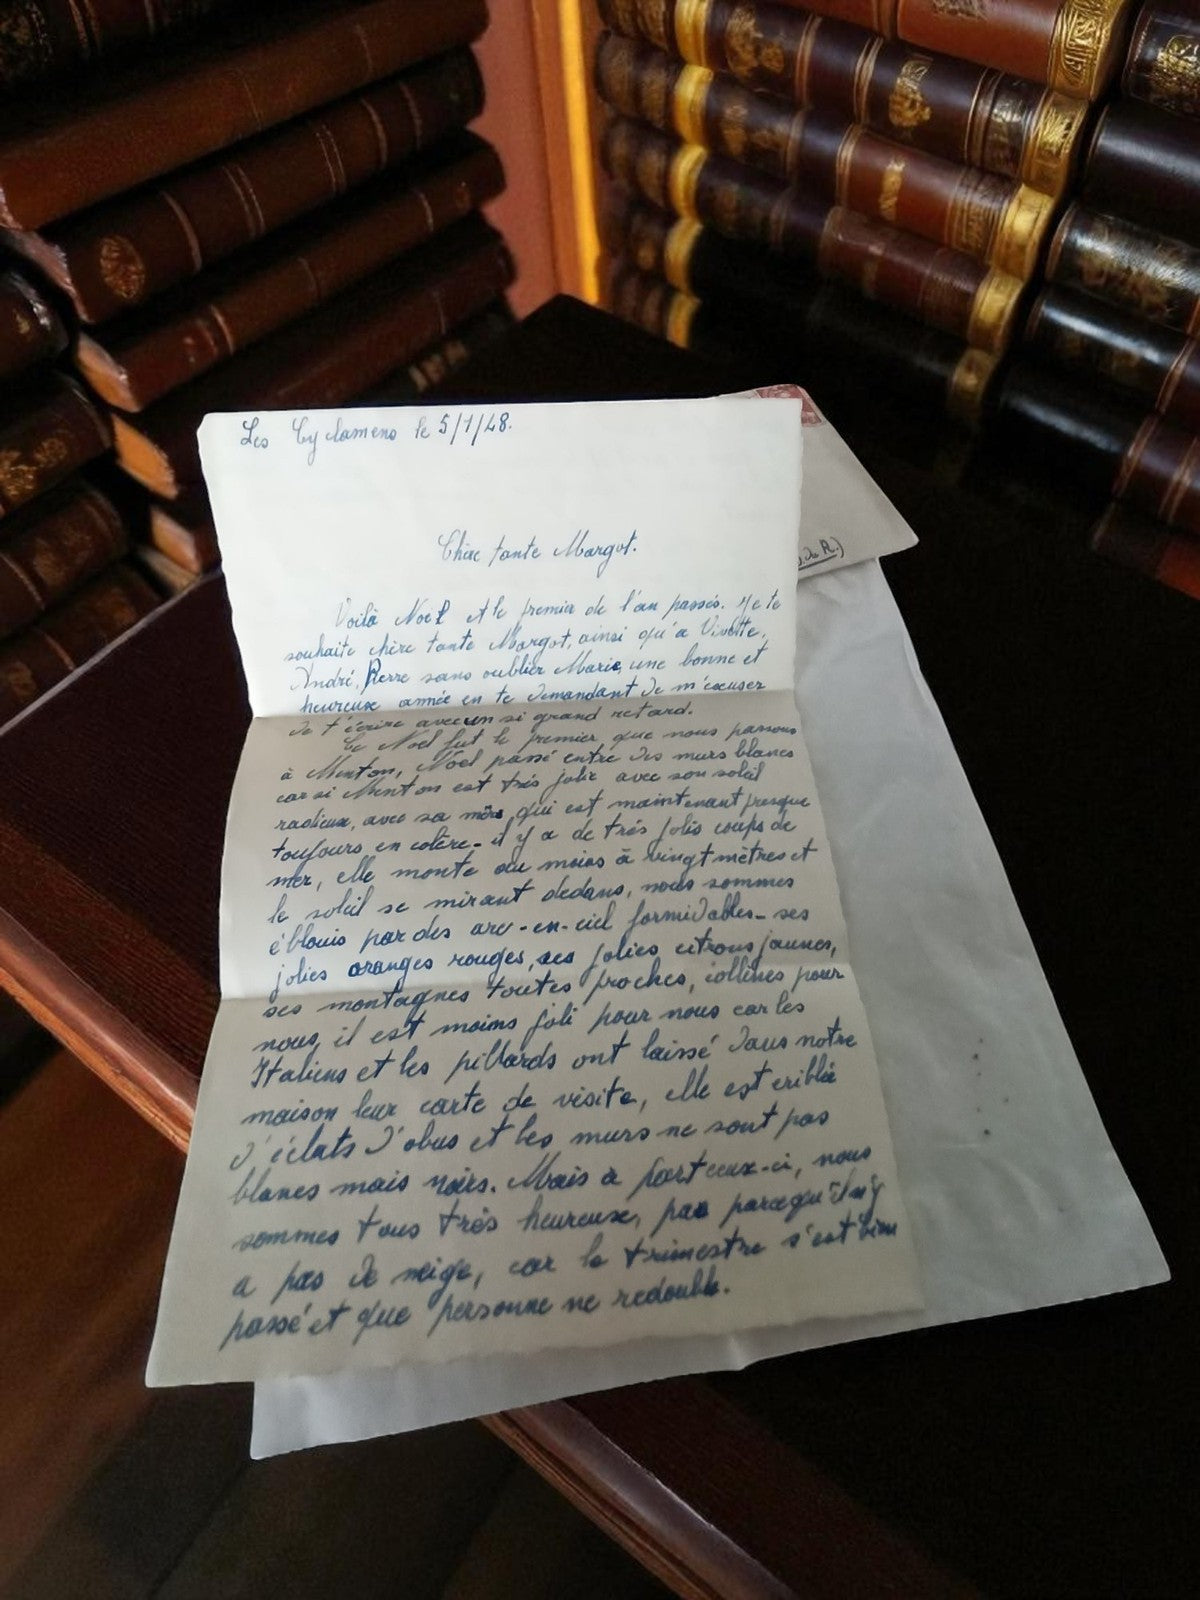 Les Cyclamens le 5/1/48.
Chère tante Margot.
Voilà Noël et le premier de l'an passés. Je te
souhaite chère tante Margot, ainsi qu'a Vivette,
André, Pierre sans oublier Marie, une bonne et
heureuse année en te demandant de m'excuser
de t'écrire avec un si grand retard.
Ce Noël fut le premier que nous passons
à Menton, Noël passé entre des murs blancs
car si Menton est très jolie avec son soleil
radieux, avec sa mère, qui est maintenant presque
toujours en colère - il y a de très jolis coups de
mer, elle monte au moins à vingt mètres et
le soleil se mirant dedans, nous sommes
éblouis par des arc-en-ciel formidables - ses
jolies oranges rouges, ses jolies citrons jaunes,
ses montagnes toutes proches, collines pour
nous, il est moins joli pour nous car les
Italiens et les pillards ont laissé dans notre
maison leur carte de visite, elle est criblée
d'éclats d'obus et les murs ne sont pas
blancs mais noirs. Mais à part ceux-ci, nous
sommes tous très heureux, pas parcequ'il n'y
a pas de neige, car le trimestre s'est bien
passé et que personne ne redouble.